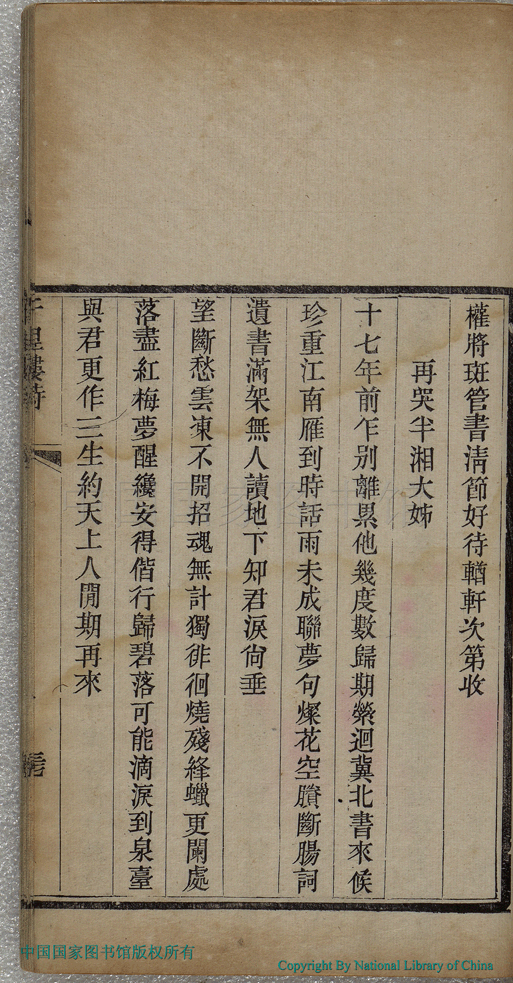 權將斑管書清節好待輶軒次第收
再哭半湘大姊
十七年前乍別離累他幾度數歸期縈迴冀北書來候
珍重江南雁到時話雨未成聯夢句燦花空賸斷腸詞
遺書滿架無人讀地下知君淚尙垂
望斷愁雲凍不開招魂無計獨徘徊燒殘絳蠟更闌處
落盡紅梅夢醒纔安得偕行歸碧落可能滴淚到泉臺
與君更作三生約天上人間期再來
中国国家图书馆版权所有
Copyright By National Library of China